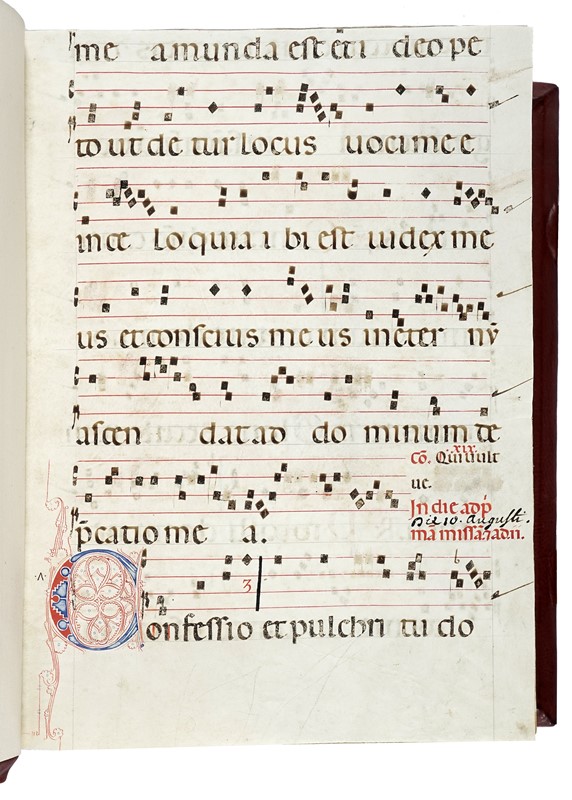 me amunda est et i deo pe
to ut de tur locus uoci me e
in ce lo quia i bi est iudex me
us et conscius me us in eter
ascen dat ad do minum de
p̄catio me a.
Cō. Qui uult
xix.
ue.
In die ad p̄
Die 10. Augusti.
mā missa
3
Confessio et pulchri tu do